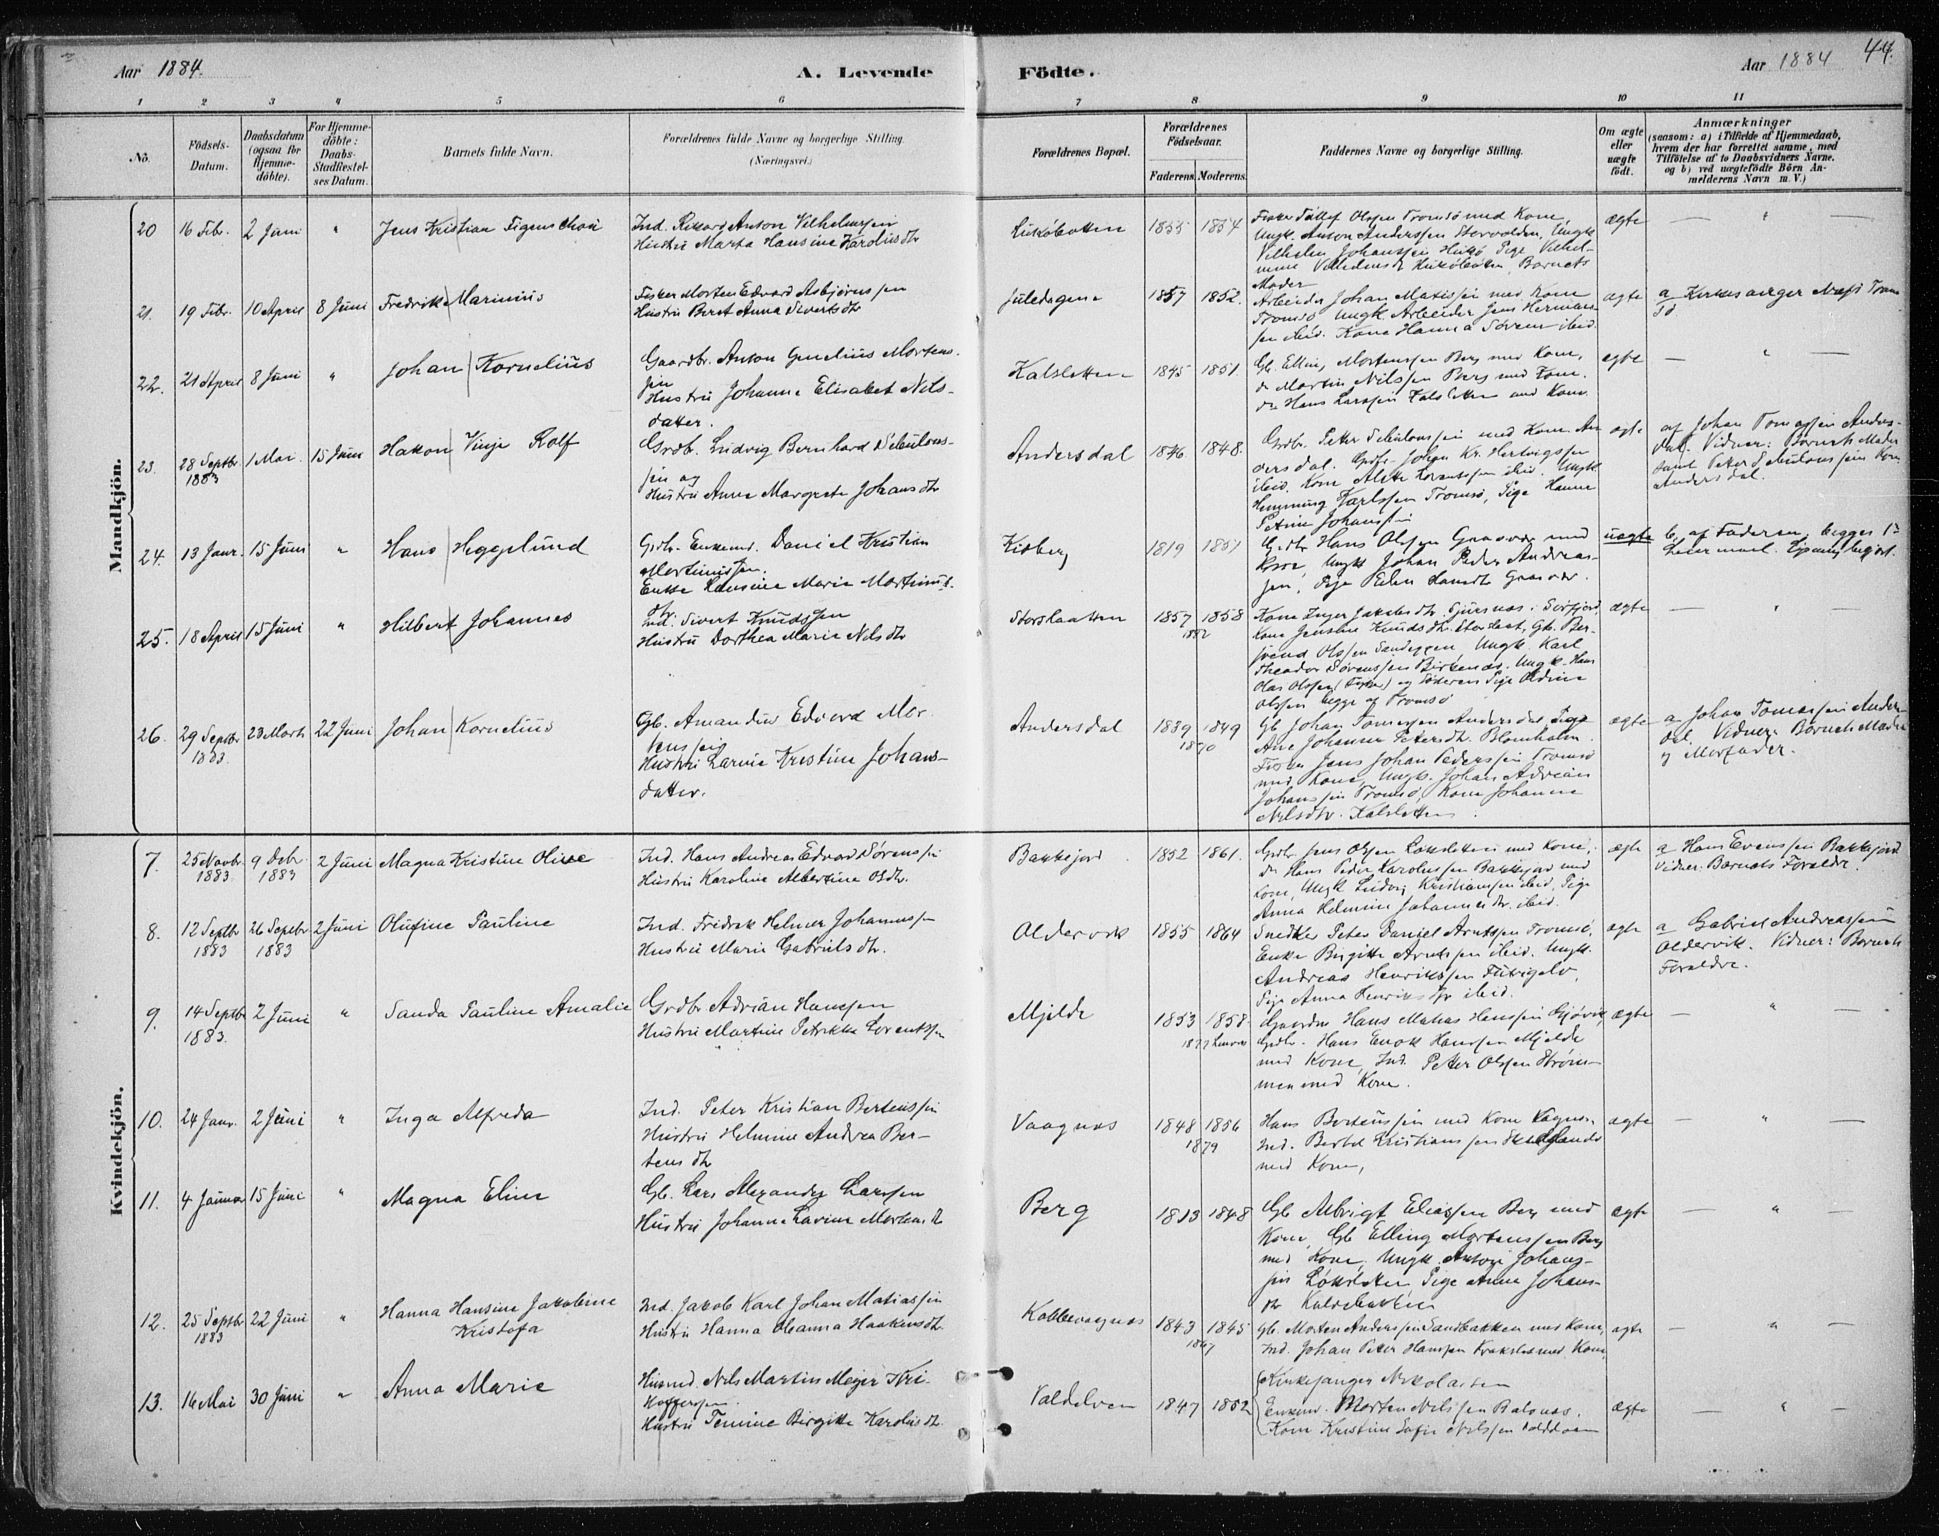 Aar 1884.
A. Levende
Födte.
Aar 1884
44.
1 2 3 4 5 6 7 8 9 10 11
No.
Födsels-Datum.
Daabsdatum (ogsaa for Hjemme-döbte).
For Hjemme-döbte: Daabs-Stadfæstel-ses Datum.
Barnets fulde Navn.
Forældrenes fulde Navne og borgerlige Stilling. (Næringsvei.)
Forældrenes Bopæl.
Forældrenes Födselsaar.
Faderens. Moderens.
Faddernes Navne og borgerlige Stilling.
Om ægte eller uægte födt.
Anmærkninger
(saasom: a) i Tilfælde af Hjemmedaab, hvem der har forrettet samme, med Tilföielse af to Daabsvidners Navne, og b) ved uægtefödte Börn Anmelderens Navn m. V.)
Mandkjön.
20 16 Febr. 2 Juni " Jens Kristian
Ind. Rikard Anton Vilhelmssen
Hustru Marta Hansine Karolusdtr
1855 1854
Olsen Tromsö med Kone,
Ungk. Anton Anderssen
Vilhelm Johanssen
Barnets
Moder
ægte — " —
21. 19 Febr. 10 April 8 Juni Fredrik Marinius
Fisker Morten Edvard Asbjörnssen
Hustru Berit Anna Sivertsdtr
1857 1852.
Arbeider Johan Matissen med Kone
Tromsö Ungk. Arbeider Jens Hermans-
sen ibid. Kone Hanna Sörens ibid.
ægte a Kirkesanger Næss Tromsö
22. 21 April 8 Juni " Johan Kornelius
Gaardbr. Anton Cornelius Mortens-
sen
Hustru Johanne Elisabet Nils-
datter.
Kalsletten 1845 1851.
Gb. Elling Mortenssen Berg med Kone,
do Martin Nilssen Berg med Kone.
do Hans Larssen Kalsletten med Kone
ægte — " —
23. 28 Septbr 1883 1 Mai. 15 Juni Hakon Vinje Rolf
Grdb. Ludvig Bernhard Sebulons-
sen og
Hustru Anne Margrete Johansdtr
Andersdal 1846. 1848.
Grdbr. Peter Sebulonssen med Kone An-
dersdal. Johan Kr. Hertvigssen
ibid. Kone
Hemming Karlssen Tromsö, Pige Hanne
Petrine Johanssen
ægte af Johan Tomassen Anders-
dal. Vidner: Barnets Moder
samt Peter Sebulonssens Kone
Andersdal.
24. 13 Janr. 15 Juni " Hans Heggelund
Grdbr. Enkemd. Daniel Kristian
Martinussen.
Enke Hansine Marie Martinus-
dtr
1819 1851
Grdbr Hans Olssen med
Kone, Ungk Johan Peder Andreas-
sen, Pige
uægte b, af Faderen, begges 1ste
Leiermaal.
25. 18 April 15 Juni " Hilbert Johannes
Ind. Sivert Knudssen
Hustru Dorthea Marie Nilsdtr
Storslaatten 1857 1858
1882
Kone Inger Jakobsdtr. Sjursnæs i Sörfjord,
Kone Jensine Knudsdtr. Storslaat, Gb. Ber-
Olssen Ungk. Karl
Theodor Sörenssen Birkenæs. Ungk. Hans
Olai Olssen (Fisker) og Söster Pige
Olssen begge af Tromsö
ægte — " —
26. 29 Septbr 1883 23 Marts 22 Juni Johan Kornelius
Gb. Amandus Edvard Mor-
tenssen
Hustru Larvie Kristine Johans-
datter.
Andersdal 1839 1849
1870
Gb Johan Tomassen Andersdal, Pige
Ane Johanna Petersdtr. Blomholm.
Fisker Jens Johan Pederssen Tromsö
med Kone, Ungk. Johan Adrian
Johanssen Tromsö, Kone Johanne
Nilsdtr. Kalsletten.
ægte a Johan Tomassen Anders-
dal, Vidner: Barnets Moder
og Morfader.
Kvindekjön.
7. 25 Novbr. 1883 9 Debr 1883 2 Juni Magna Kristine Oline
Ind. Hans Andreas Edvard Sörenssen
Hustru Karoline Albertine Olsdtr.
Bakkejord 1852 1861.
Grdbr. Jens Olssen med Kone,
do Hans Peder Karolussen Bakkejord med
Kone, Ungk Ludvig Kristianssen ibid, Pige
Anna Helmine Johannesdtr. ibid.
ægte a Hans Evenssen Bakkejord
Vidner: Barnets Forældre.
8. 12 Septbr 1883 26 Septbr. 1883 2 Juni Olufine Pauline
Ind. Fredrik Helmer Johannssen
Hustru Marie Gabrielsdtr.
Oldervik 1855 1864
Snedker Peter Daniel Arntssen Tromsö,
Enke Birgitte Arntssen ibid. Ungk.
Andreas Henrikssen
Pige Anna Henriksdtr ibid.
ægte a Gabriel Andreassen
Oldervik. Vidner: Barnets
Forældre.
9. 14 Septbr 1883. 2 Juni " Sanda Pauline Amalie
Grdbr Adrian Hanssen
Hustru Martine Petrikke Lorentssen
Mjelde 1853 1858.
Hans Matias Hanssen Gjövik,
Grdbr. Hans Enok Hanssen Mjelde
med Kone, Ind. Peter Olssen Ström-
men med Kone.
ægte — " —
10. 24 Janr. 2 Juni " Inga Alfreda
Ind. Peter Kristian Bertenssen
Hustru Helmine Andrea Ber-
tensdtr
Vaagnæs 1848 1856
1879
Hans Bertenssen med Kone Vagnæs.
Ind. Bertel Kristianssen
med Kone,
ægte — " —
11. 4 Januar 15 Juni " Magna Eline
Gb. Lars Alexander Larssen
Hustru Johanna Larine Mortensdtr
Berg 1813 1848
Gb Albrigt Eliassen Berg med
Kone, Gb Elling Mortenssen Berg
med Kone, Ungk. Anton Johans-
sen Pige Anna Johans-
dtr
ægte — " —
12. 25 Septbr 1883 22 Juni " Hanna Hansine Jakobine
Kristofa
Ind. Jakob Karl Johan Matiassen
Hustru Hanna Oleanna Haakensdtr.
Kobbevaagnæs 1843 1845
1867
Gb. Morten Anderssen Sandbakken med Kone,
Ind. Johan Peter Hanssen med Kone.
ægte — " —
13. 16 Mai 30 Juni " Anna Marie
Husmd. Nils Martin Meyer Kri-
stofferssen.
Hustru Temine Birgitte Karolusdtr.
1847 1852
Kirkesanger Nikolaissen
Enkem. Morten Nilssen
Kone Kristine Sofie Nilssen
ægte — " —